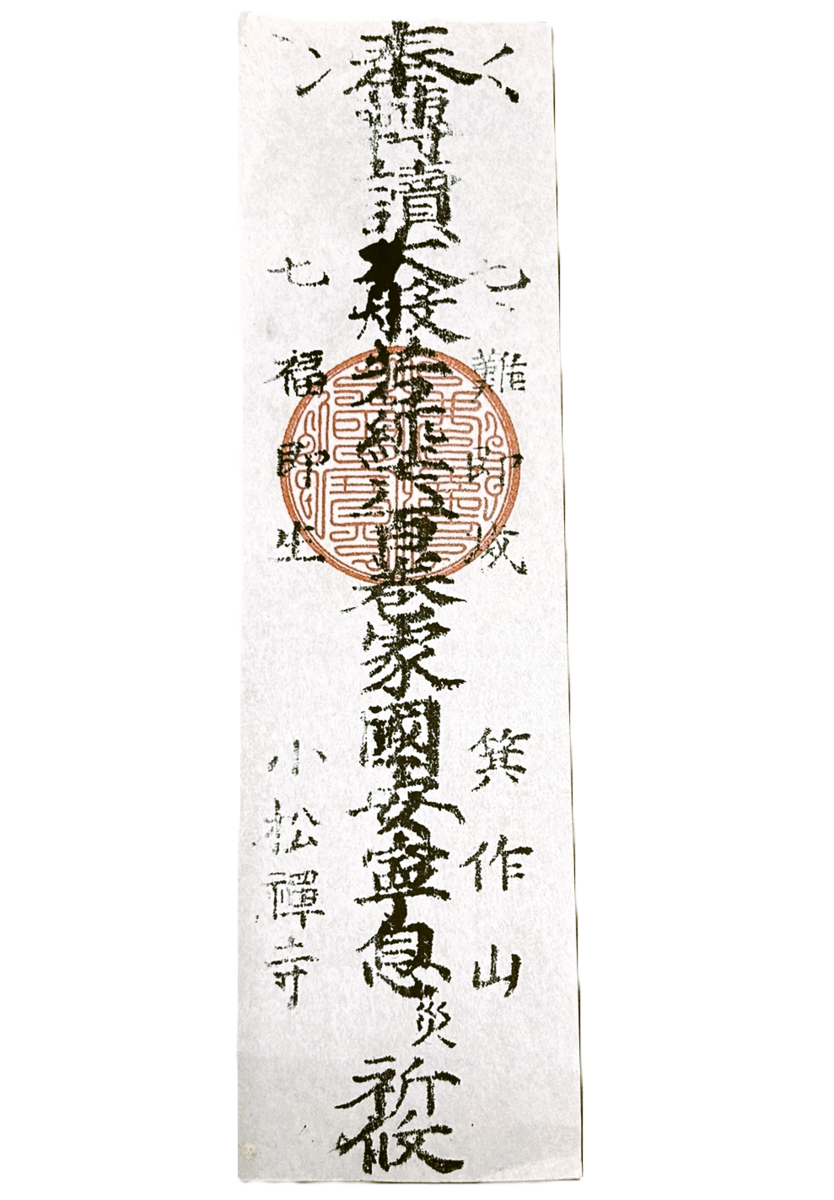 七難即滅
箕作山
奉轉讀大般若經六百巻家國安寧息災祈攸
七福即生
小松禪寺